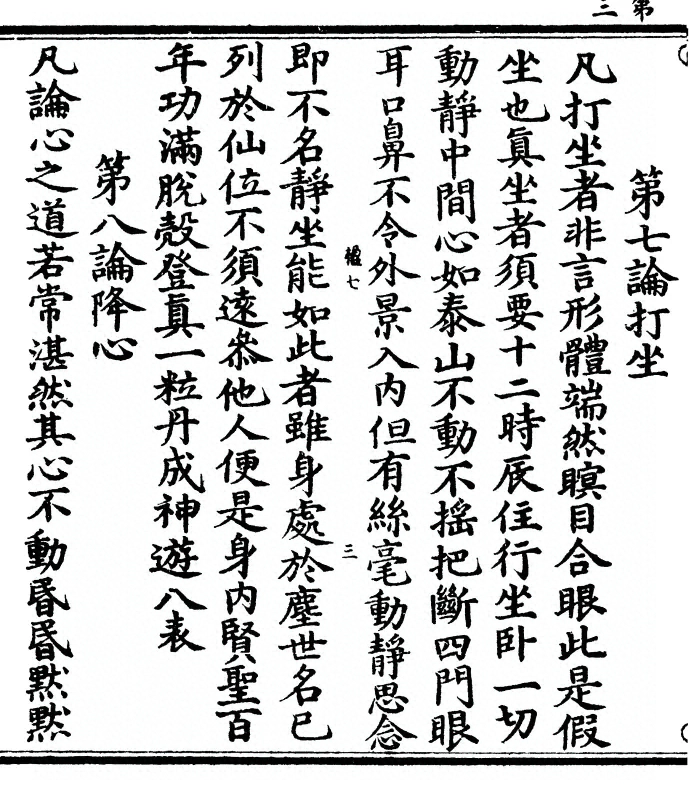 第三
第七論打坐
凡打坐者非言形體端然瞑目合眼此是假
坐也眞坐者須要十二時辰住行坐卧一切
動靜中間心如泰山不動不搖把斷四門眼
耳口鼻不令外景入內但有絲毫動靜思念
楹七 三
即不名靜坐能如此者雖身處於塵世名已
列於仙位不須遠叅他人便是身內賢聖百
年功滿脫殼登眞一粒丹成神遊八表
第八論降心
凡論心之道若常湛然其心不動昏昏默默